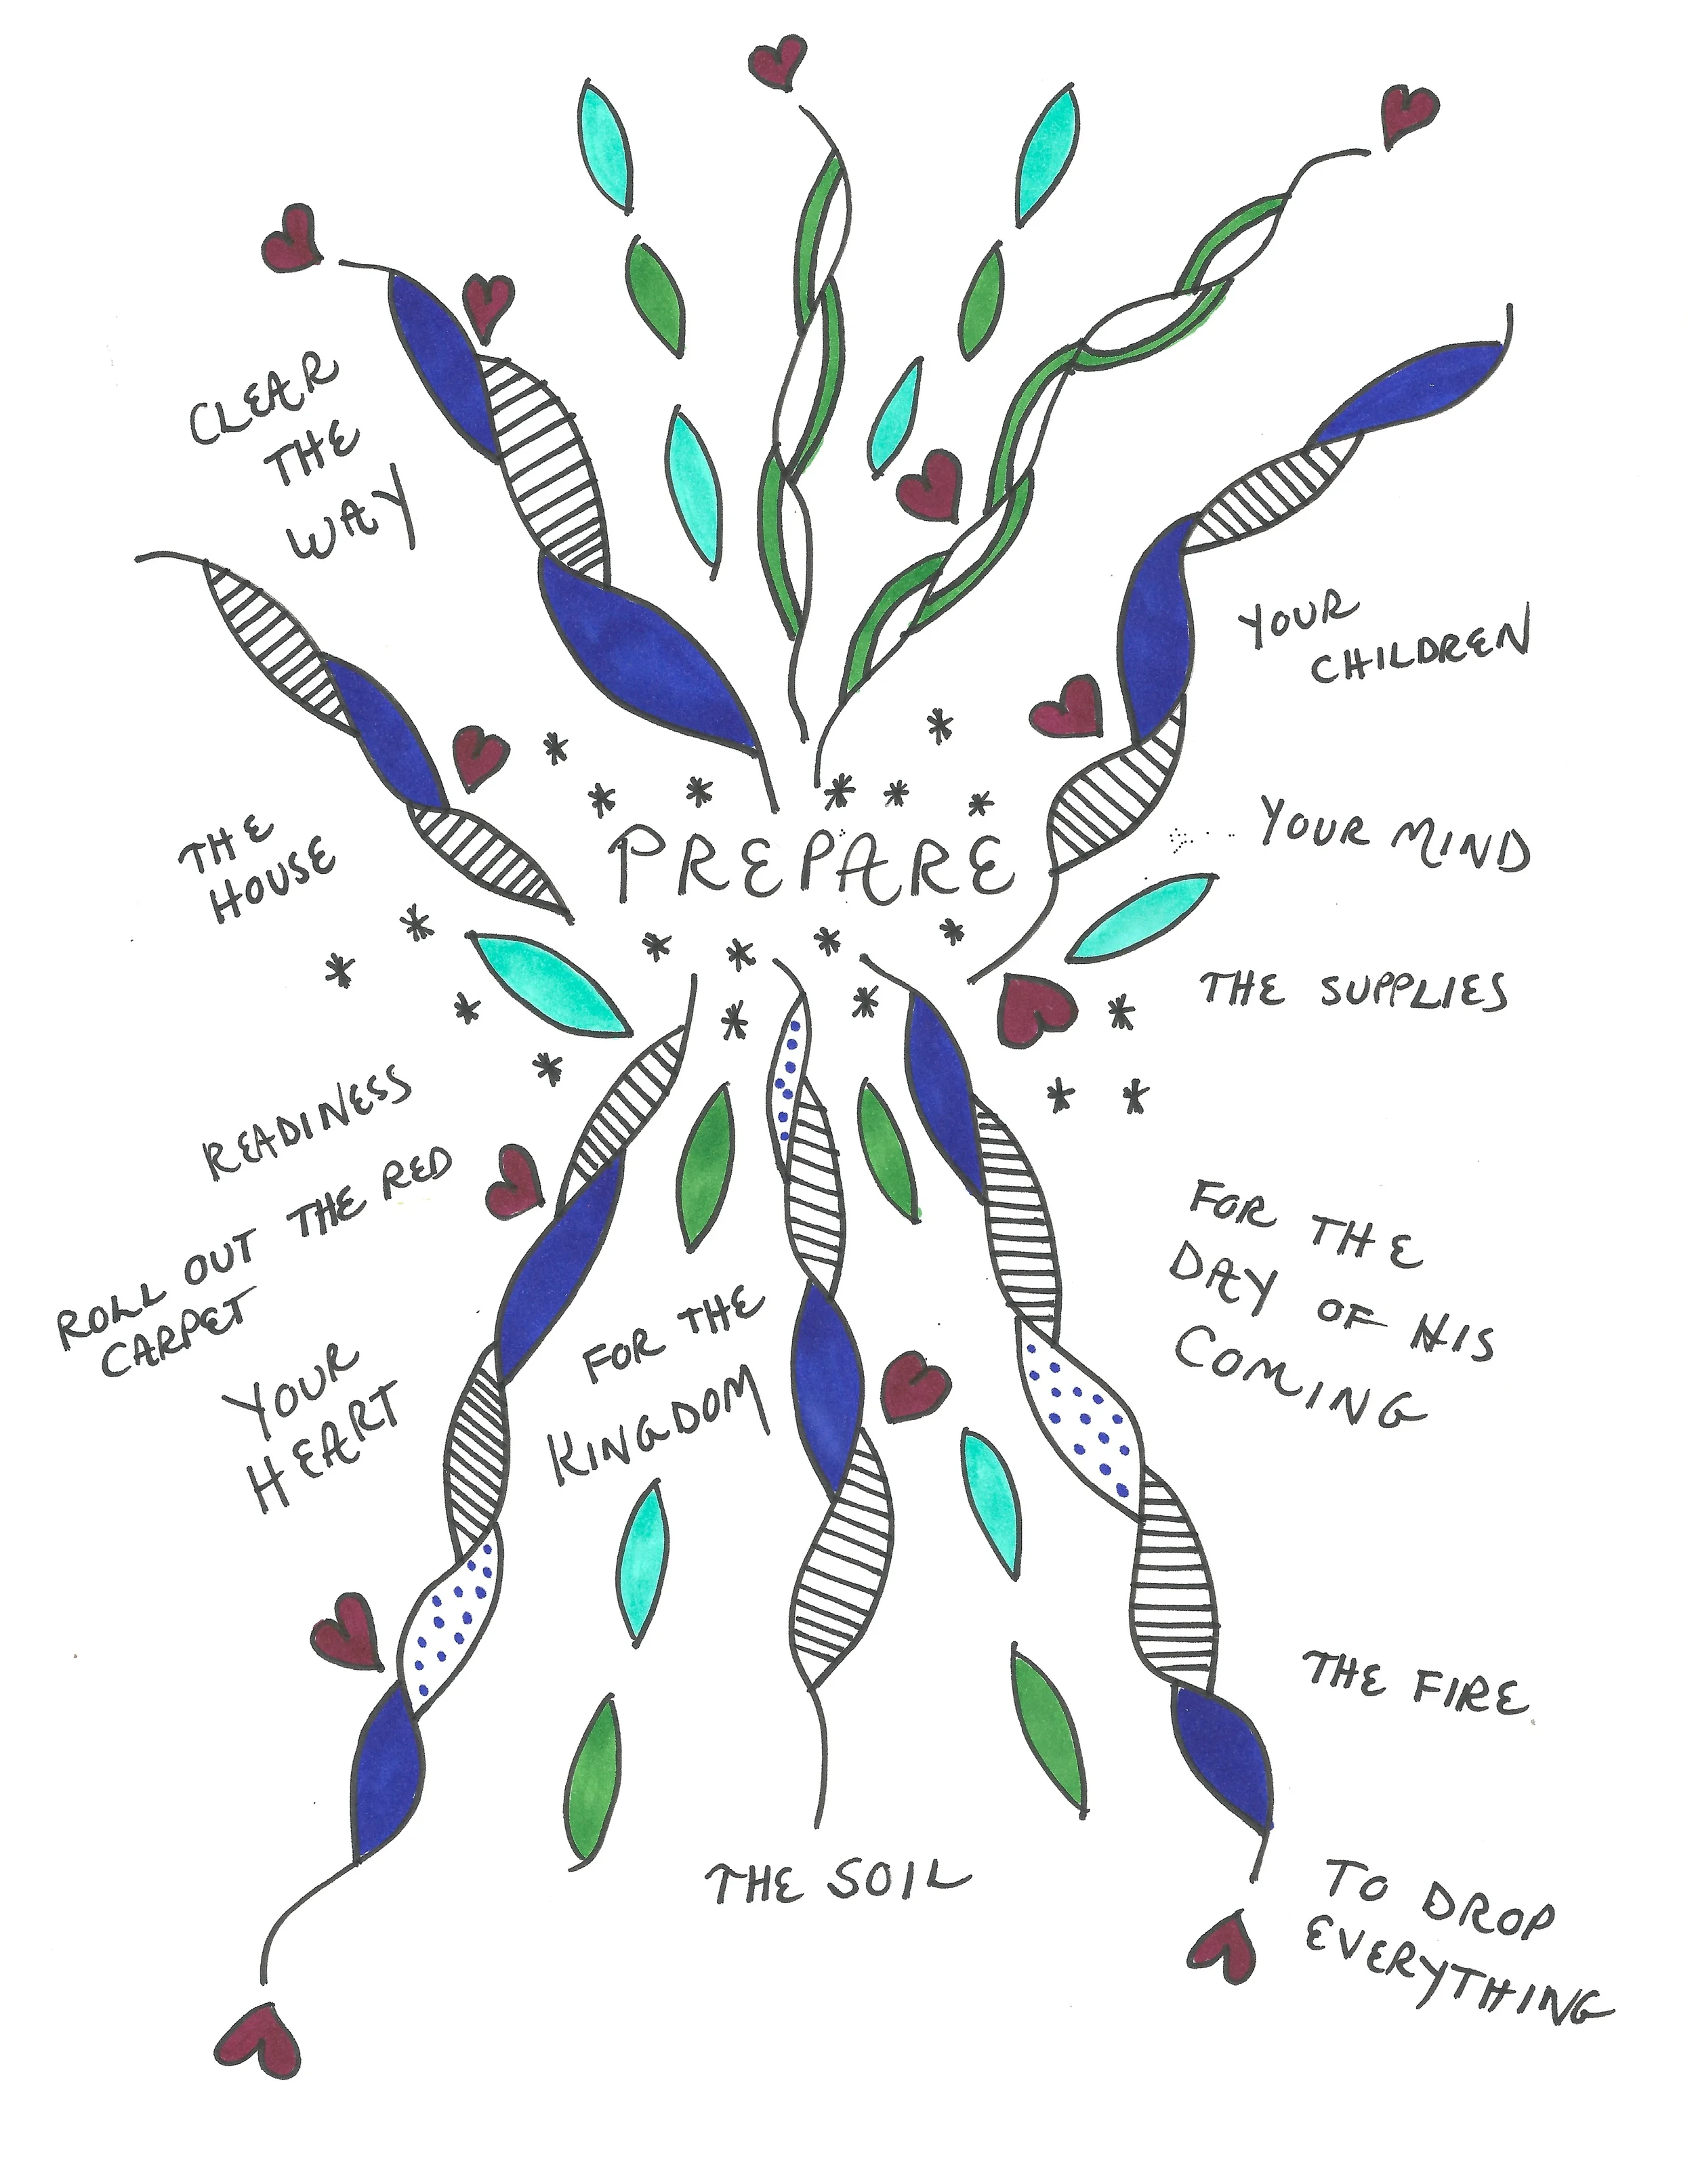 CLEAR
THE
WAY
YOUR
CHILDREN
PREPARE
YOUR MIND
THE
HOUSE
THE SUPPLIES
READINESS
ROLL OUT THE RED
CARPET
YOUR
HEART
FOR THE
KINGDOM
FOR THE
DAY OF HIS
COMING
THE FIRE
THE SOIL
TO DROP
EVERYTHING